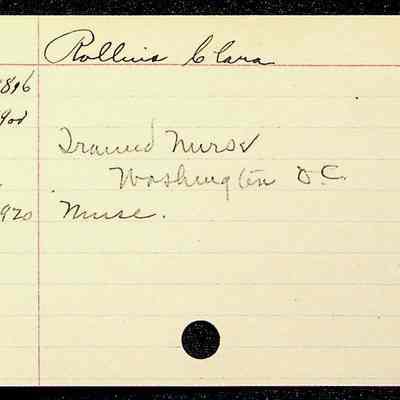 Rollins Clara
1896
1900
Trained Nurse
Washington D.C.
1920 Nurse.